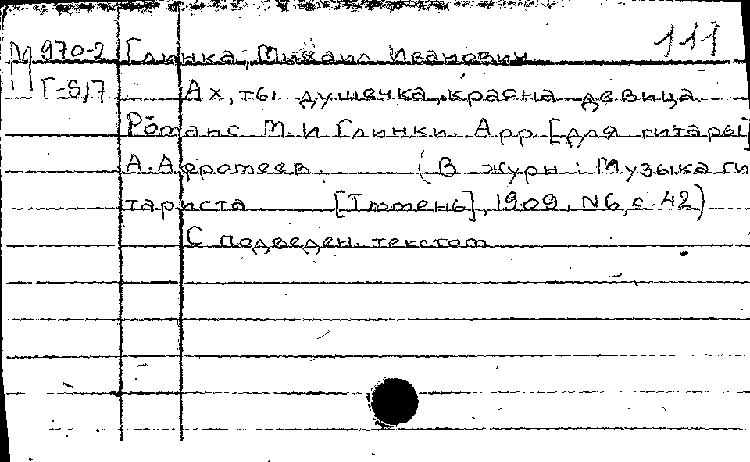 М 970-2 Глинка, Михаил Иванович 111
Г-5,7 Ах, ты душечка, красна девица
Романс М. И Глинки. Арр [для гитары]
А. Афромеев. (В журн: Музыка ги
тариста [Тюмень], 1909, N6, с 42)
С подведен. текстом